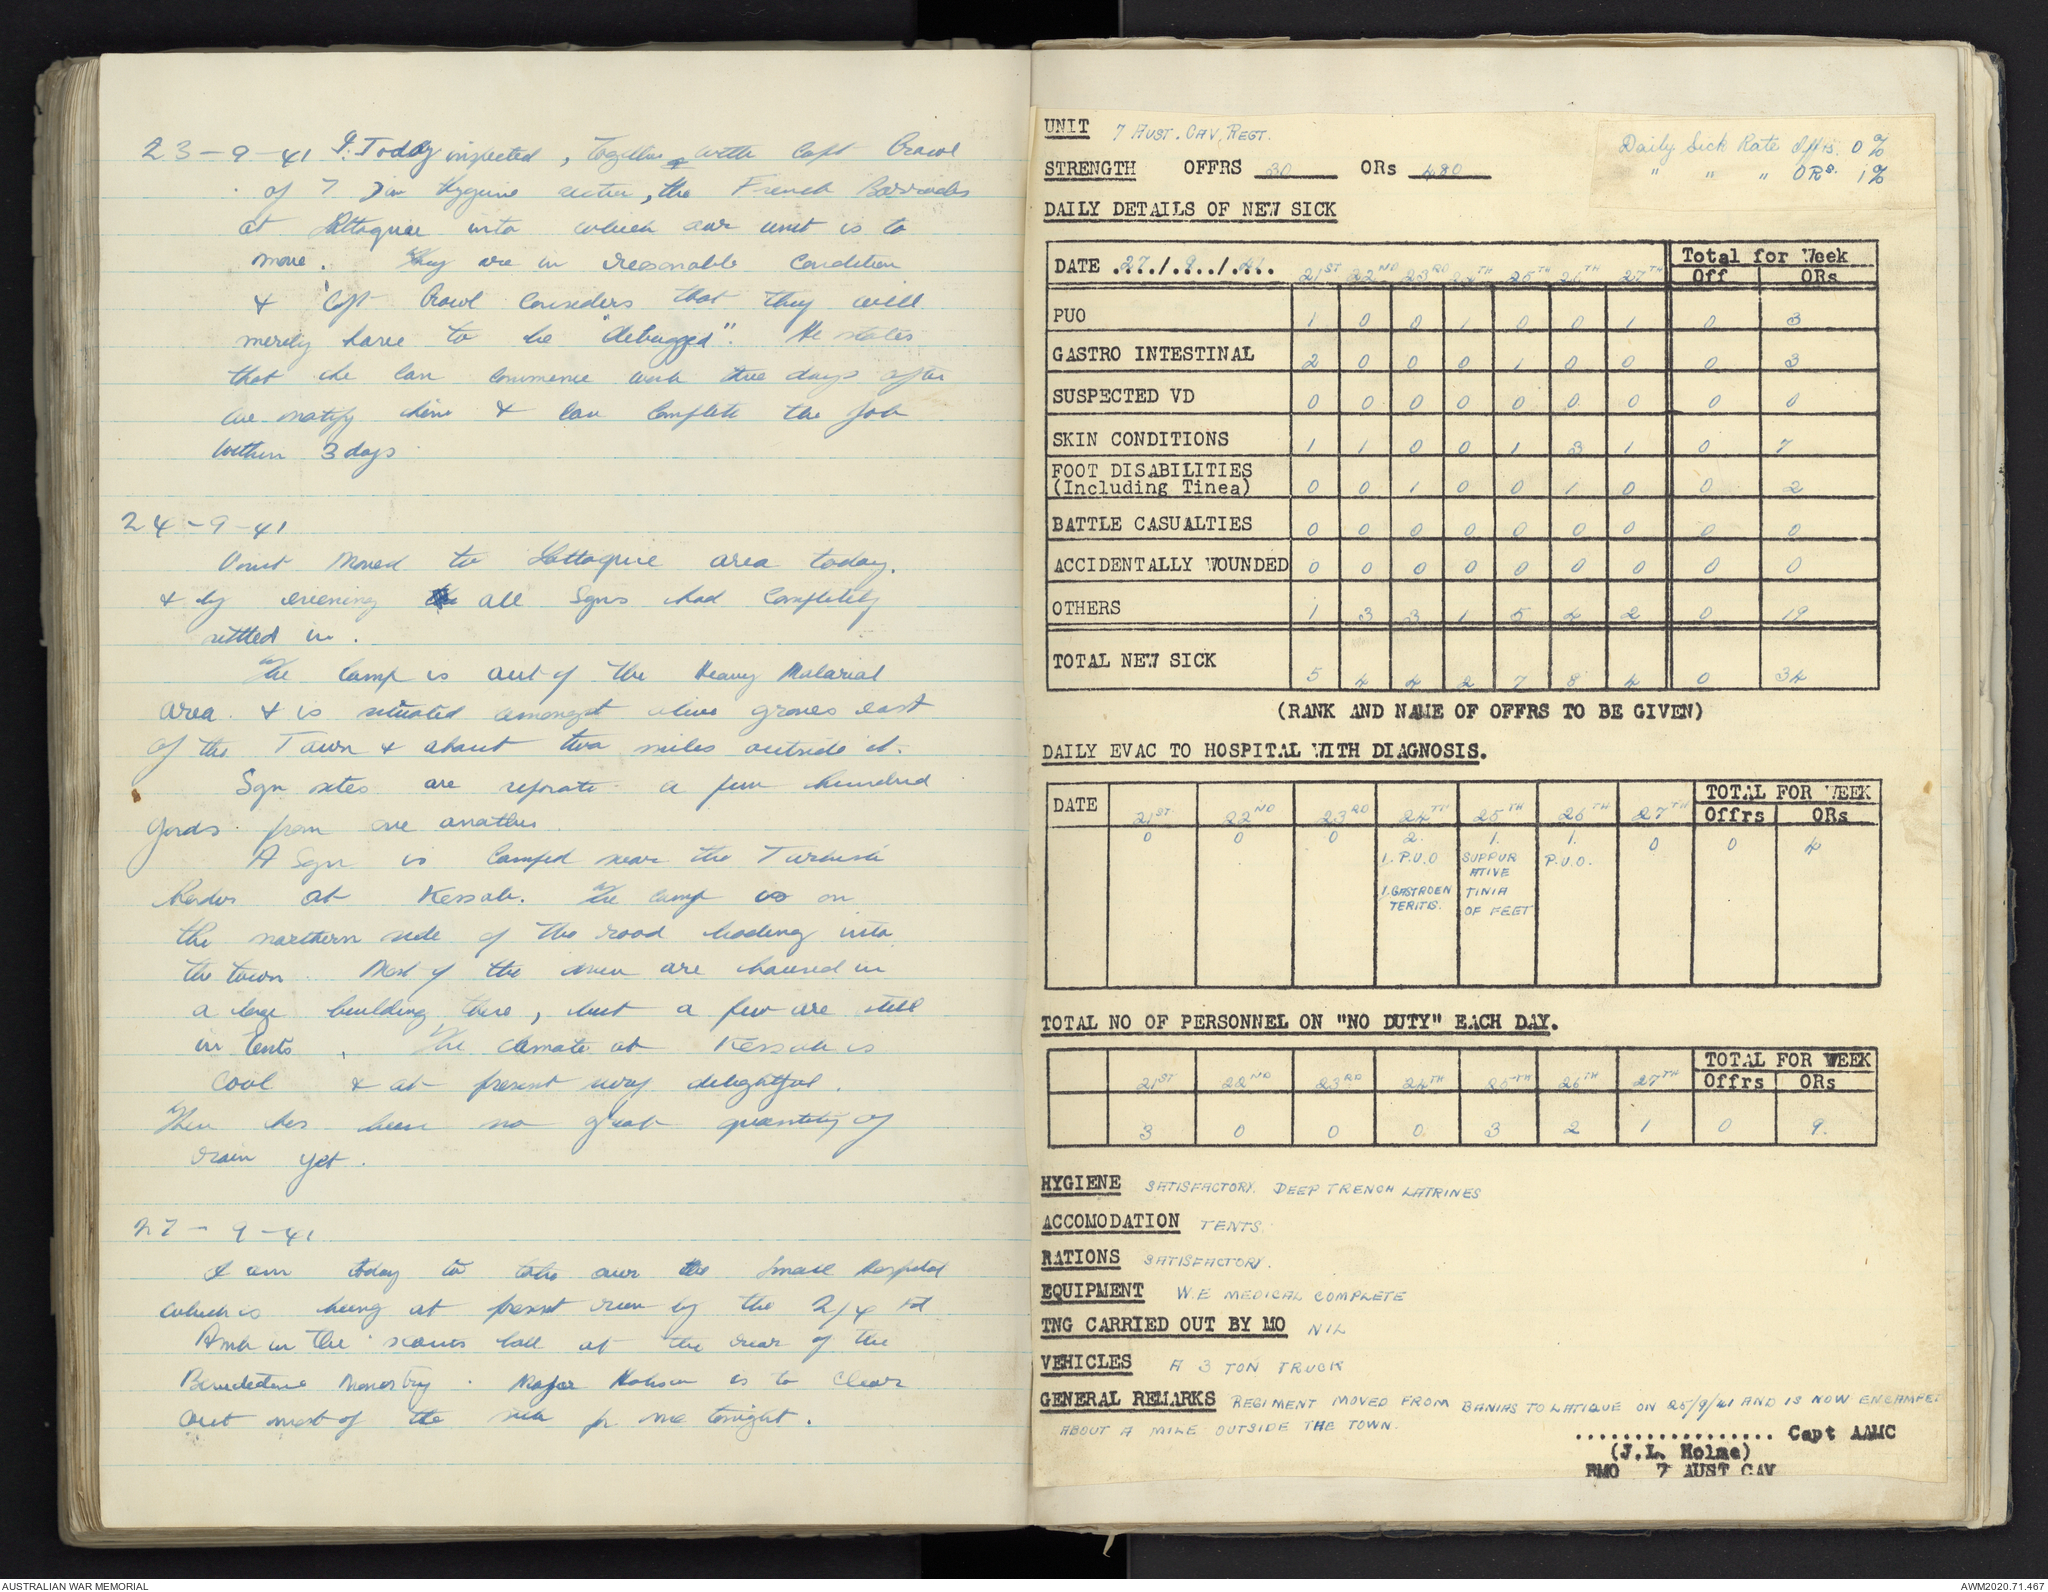 23-9-41 I Today inspected, together with Capt Crowl
of 7 Div Hygiene section, the French Barracks
at Lattaquie into which our unit is to
move. They are in reasonable condition
& Capt Crowl considers that they will
merely have to be "debugged". He states
that he can commence work three days after
we notify him & can complete the job
within 3 days
24-9-41
Unit moved to Lattaquie area today.
& by evening all Sqns had completely
settled in.
The camp is out of the Heavy Malarial
area. & is situated amongst olive groves east
of the Town & about two miles outside it.
Sqn sites are separate a few hundred
yards from one another
A Sqn is camped near the Turkish
border at Kessab. The camp is on
the northern side of the road leading into
the town. Most of the men are housed in
a large building there, but a few are still
in tents. The climate at Kessab is
cool & at present very delightful.
There has been no great quantity of
rain yet.
27-9-41
I am today to take over the small hospital
which is being at present run by the 2/4 Fd
Amb in the scouts hall at the rear of the
Benedictine Monastry. Major Hobson is to clear
out most of the sick for me tonight.
UNIT 7 AUST. CAV. REGT.
Daily Sick Rate Offrs. 0%
" " " ORs. 1%
STRENGTH OFFRS 30 ORs 480
DAILY DETAILS OF NEW SICK
DATE 27/9/41 21ST 22ND 23RD 24TH 25TH 26TH 27TH Total for Week Off ORs
PUO 1 0 0 1 0 0 1 0 3
GASTRO INTESTINAL 2 0 0 0 1 0 0 0 3
SUSPECTED VD 0 0 0 0 0 0 0 0 0
SKIN CONDITIONS 1 1 0 0 1 3 1 0 7
FOOT DISABILITIES
(Including Tinea) 0 0 1 0 0 1 0 0 2
BATTLE CASUALTIES 0 0 0 0 0 0 0 0 0
ACCIDENTALLY WOUNDED 0 0 0 0 0 0 0 0 0
OTHERS 1 3 3 1 5 4 2 0 19
TOTAL NEW SICK 5 4 4 2 7 8 4 0 34
(RANK AND NAME OF OFFRS TO BE GIVEN)
DAILY EVAC TO HOSPITAL WITH DIAGNOSIS.
TOTAL FOR WEEK
DATE 21ST 22ND 23RD 24TH 25TH 26TH 27TH Offrs ORs
0 0 0 2. 1. 1. 0 0 4
1. P.U.O SUPPUR P.U.O.
ATIVE
1. GASTROEN TINIA
TERITIS. OF FEET
TOTAL NO OF PERSONNEL ON "NO DUTY" EACH DAY.
TOTAL FOR WEEK
21ST 22ND 23RD 24TH 25TH 26TH 27TH Offrs ORs
3 0 0 0 3 2 1 0 9.
HYGIENE SATISFACTORY. DEEP TRENCH LATRINES
ACCOMODATION TENTS.
RATIONS SATISFACTORY.
EQUIPMENT W.E MEDICAL COMPLETE
TNG CARRIED OUT BY MO NIL
VEHICLES A 3 TON TRUCK
GENERAL REMARKS REGIMENT MOVED FROM BANIAS TO LATIQUE ON 25/9/41 AND IS NOW ENCAMPE
ABOUT A MILE OUTSIDE THE TOWN.
.................. Capt AAMC
(J.L. Holme)
RMO 7 AUST CAV
AUSTRALIAN WAR MEMORIAL
AWM2020.71.467